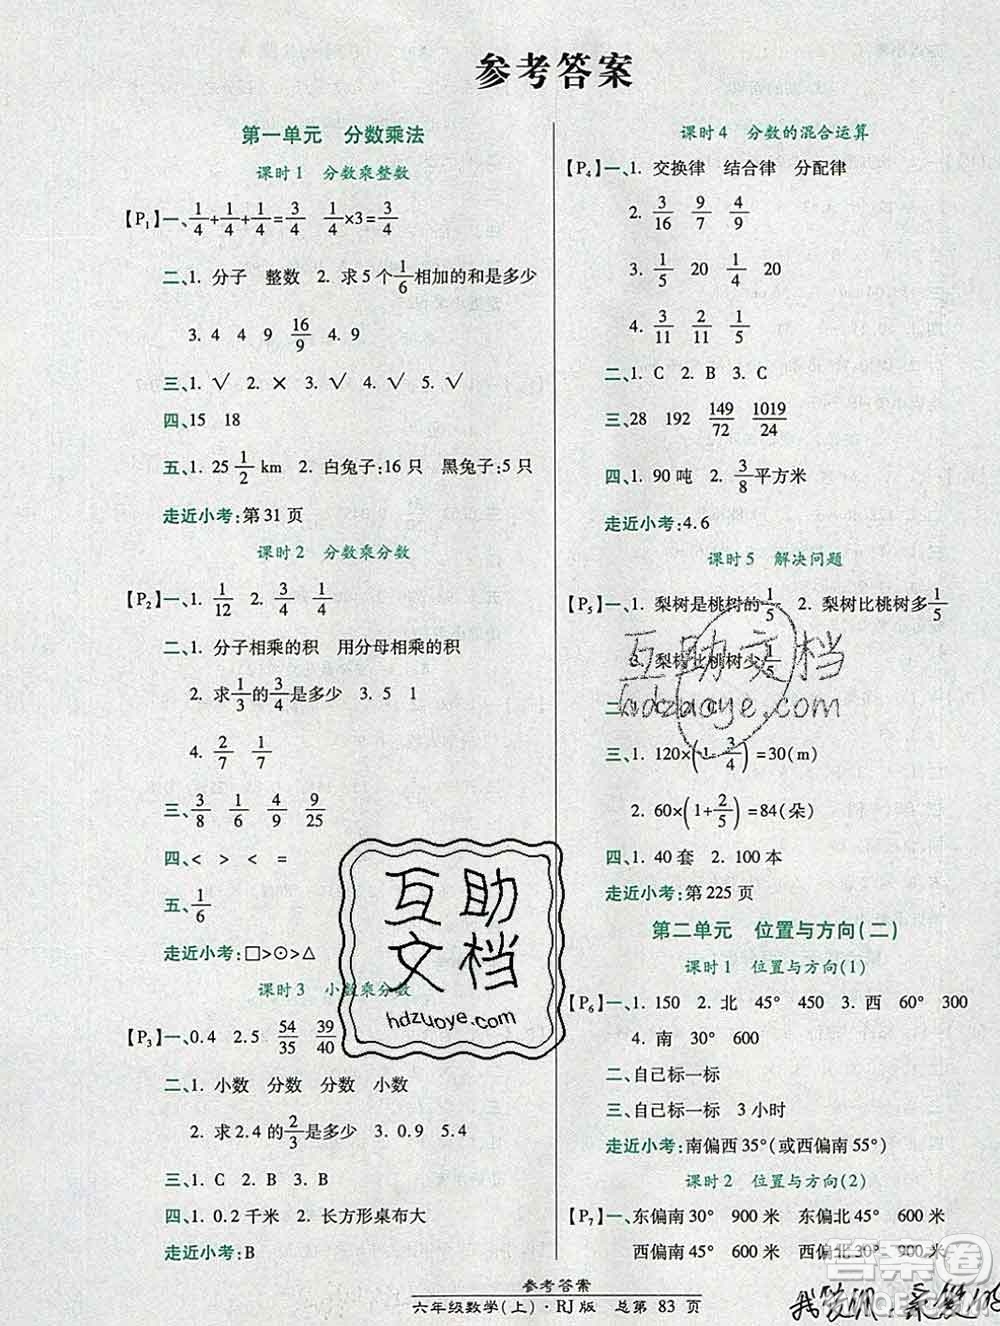 参考答案
第一单元 分数乘法
课时1 分数乘整数
【P1】一、1/4+1/4+1/4=3/4 1/4×3=3/4
二、1. 分子 整数 2. 求5个1/6相加的和是多少
3. 4 4 9 16/9 4. 9
三、1. √ 2. × 3. √ 4. √ 5. √
四、15 18
五、1. 25 1/2 km 2. 白兔子:16只 黑兔子:5只
走近小考:第31页
课时2 分数乘分数
【P2】一、1. 1/12 2. 3/4 1/4
二、1. 分子相乘的积 用分母相乘的积
2. 求1/3的3/4是多少 3. 5 1
4. 2/7 1/7
三、3/8 1/6 4/9 9/25
四、< > < =
五、1/6
走近小考:□>⊙>△
课时3 小数乘分数
【P3】一、0.4 2.5 54/35 39/40
二、1. 小数 分数 分数 小数
2. 求2.4的2/3是多少 3. 0.9 5.4
三、1. C 2. B 3. B
四、1. 0.2千米 2. 长方形桌布大
走近小考:B
课时4 分数的混合运算
【P4】一、1. 交换律 结合律 分配律
2. 3/16 9/7 4/9
3. 1/5 20 1/4 20
4. 3/11 2/11 1/5
二、1. C 2. B 3. C
三、28 192 149/72 1019/24
四、1. 90吨 2. 3/8平方米
走近小考:4.6
课时5 解决问题
【P5】一、1. 梨树是桃树的1/5 2. 梨树比桃树多1/5
3. 梨树比桃树少1/5
二、1. C 2. C
三、1. 120×(1-3/4)=30(m)
2. 60×(1+2/5)=84(朵)
四、1. 40套 2. 100本
走近小考:第225页
第二单元 位置与方向(二)
课时1 位置与方向(1)
【P6】一、1. 150 2. 北 45° 450 3. 西 60° 300
4. 南 30° 600
二、自己标一标
三、自己标一标 3小时
走近小考:南偏西35°(或西偏南55°)
课时2 位置与方向(2)
【P7】一、东偏南30° 900米 东偏北45° 600米
西偏南45° 600米 西偏北30° 900米
互助文档
hdzuoye.com
互助文档
hdzuoye.com
答案圈
参考答案
六年级数学(上)·RJ版 总第 83 页